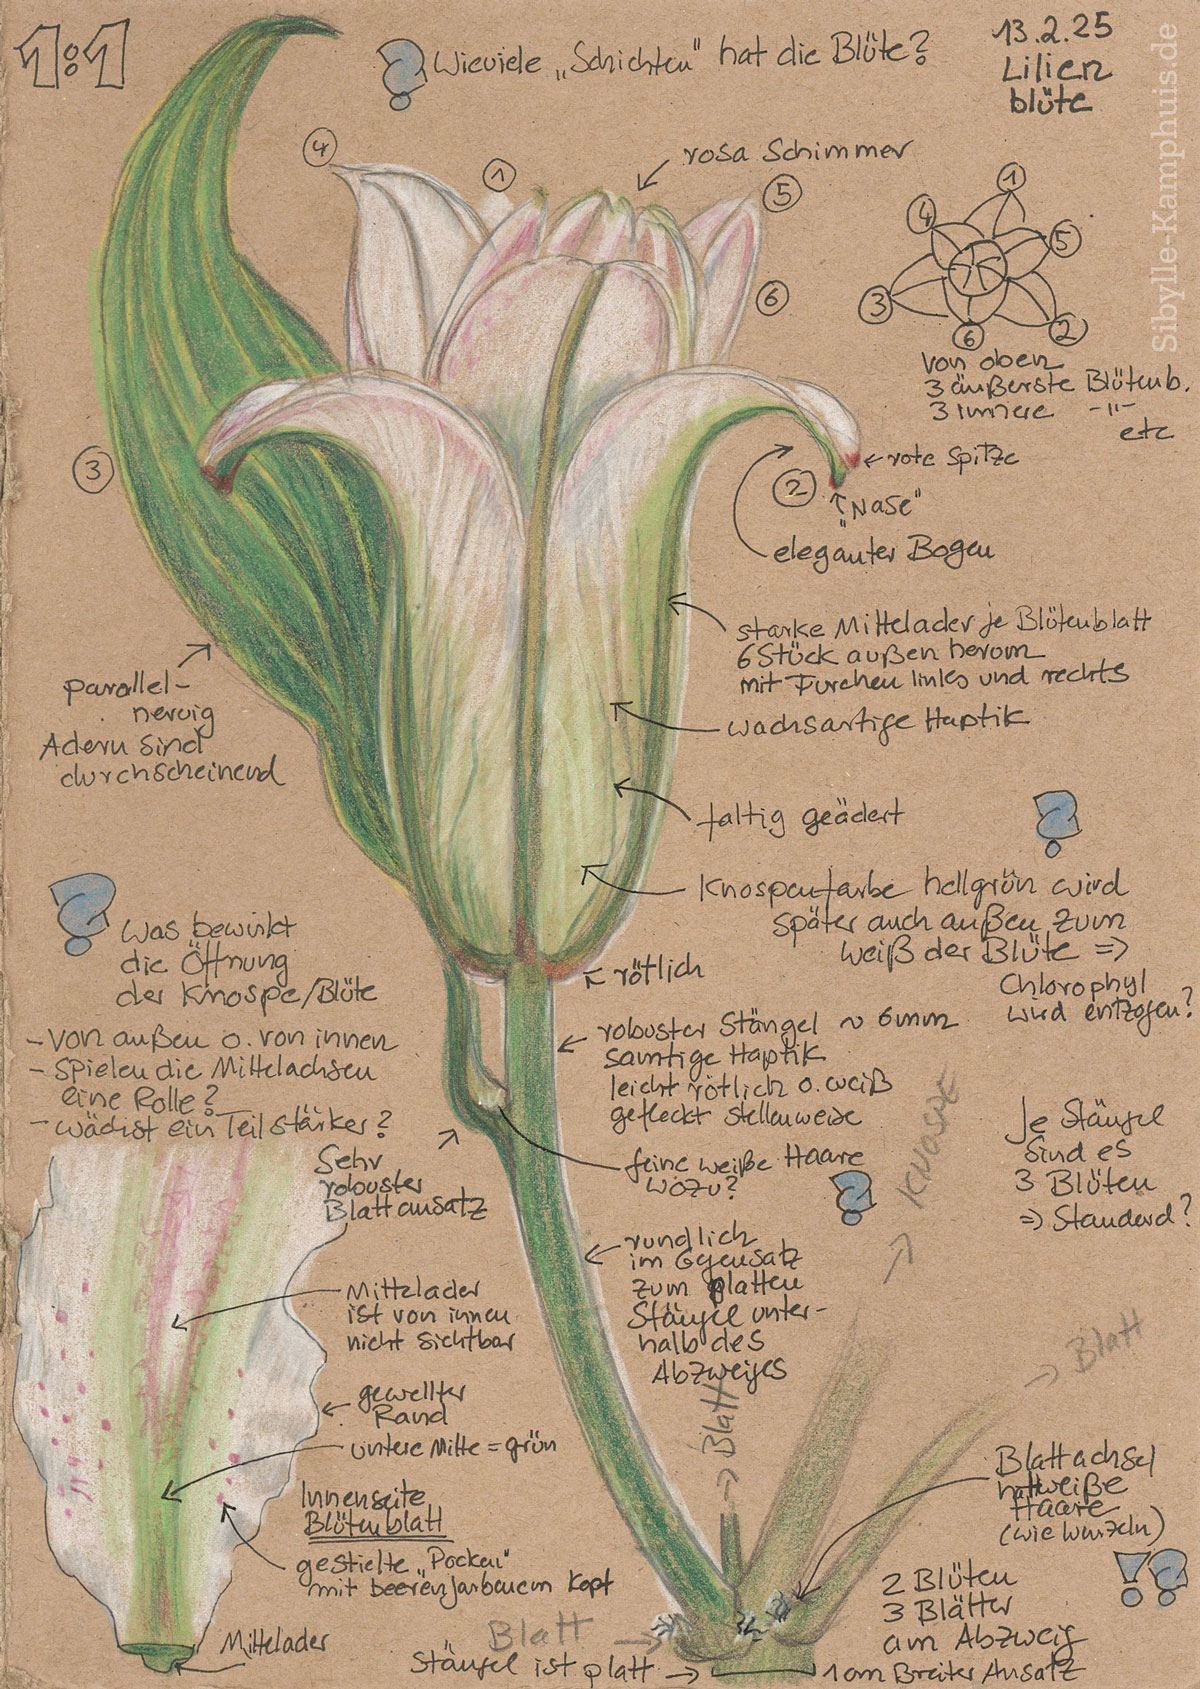 1:1
Wieviele „Schichten" hat die Blüte?
13.2.25
Lilien
blüte
Sibylle-Kamphuis.de
rosa Schimmer
4
1
5
6
3
2
1
4
5
3
6
2
von oben
3 äußerste Blütenb.
3 innere -"-
etc
rote Spitze
"Nase"
eleganter Bogen
starke Mittelader je Blütenblatt
6 Stück außen herum
mit Furchen links und rechts
wachsartige Haptik
faltig geädert
Knospenfarbe hellgrün wird
später auch außen zum
weiß der Blüte =>
Chlorophyl
wird entzogen?
parallel-
nervig
Adern sind
durchscheinend
Was bewirkt
die Öffnung
der Knospe/Blüte
- von außen o. von innen
- spielen die Mittelachsen
eine Rolle?
- wächst ein Teil stärker?
rötlich
robuster Stängel ~ 6mm
samtige Haptik
leicht rötlich o. weiß
gefleckt stellenweise
feine weiße Haare
wozu?
Sehr
robuster
Blattansatz
rundlich
im Gegensatz
zum platten
Stängel unter-
halb des
Abzweiges
Knospe
Je Stängel
sind es
3 Blüten
=> Standard?
Mittelader
ist von innen
nicht sichtbar
gewellter
Rand
untere Mitte = grün
Innenseite
Blütenblatt
gestielte "Pocken"
mit beerenfarbenem Kopf
Mittelader
Blatt
Blatt
Blattachsel
hat weiße
Haare
(wie Wurzeln)
2 Blüten
3 Blätter
am Abzweig
Blatt
Stängel ist platt
1 cm Breiter Ansatz